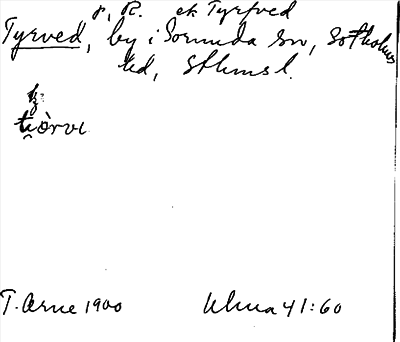 p, R. ek Tyrfved
Tyrved, by i Sorunda sn, Sotholms
hd, Sthmsl.
tꞩ
ti̯òrvɩ
T. Arne 1900 Ulma 41:60